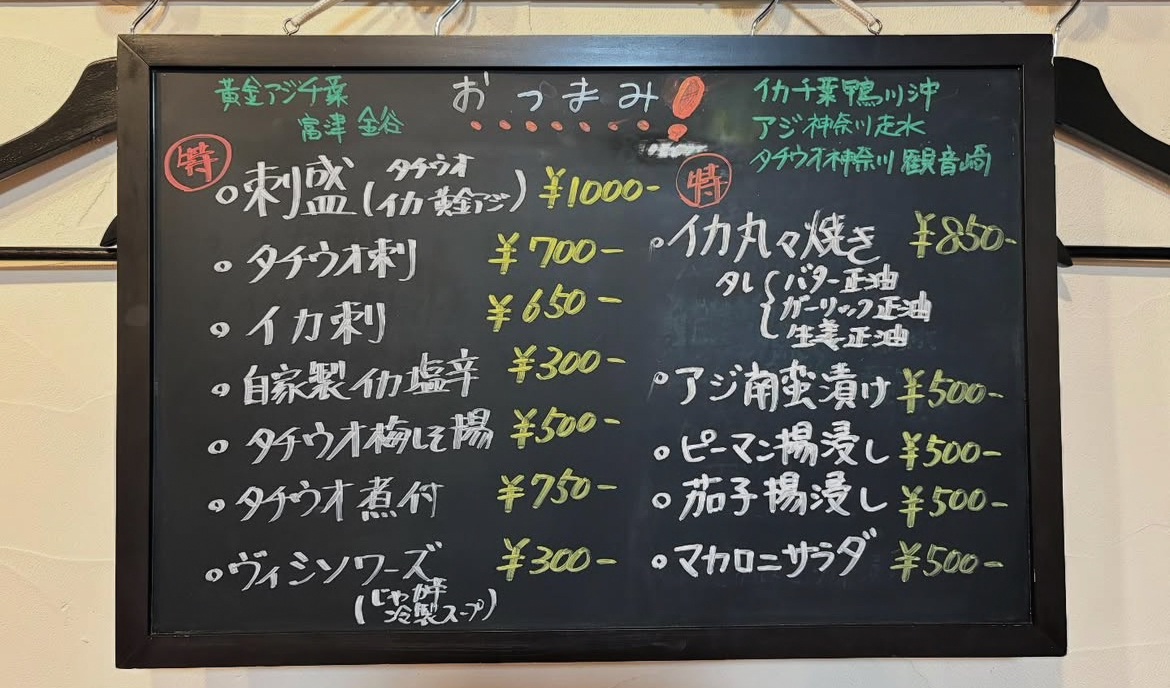 おつまみ!
黄金アジ千葉
富津 金谷
イカ千葉鴨川沖
アジ神奈川走水
タチウオ神奈川観音崎
特
。刺盛(タチウオ
イカ 黄金アジ) ¥1000-
。タチウオ刺 ¥700-
。イカ刺 ¥650-
。自家製イカ塩辛 ¥300-
。タチウオ梅しそ揚 ¥500-
。タチウオ煮付 ¥750-
。ヴィシソワーズ ¥300-
(じゃが芋
冷製スープ)
特
。イカ丸々焼き ¥850-
タレ{バター正油
ガーリック正油
生姜正油
。アジ南蛮漬け ¥500-
。ピーマン揚浸し ¥500-
。茄子揚浸し ¥500-
。マカロニサラダ ¥500-